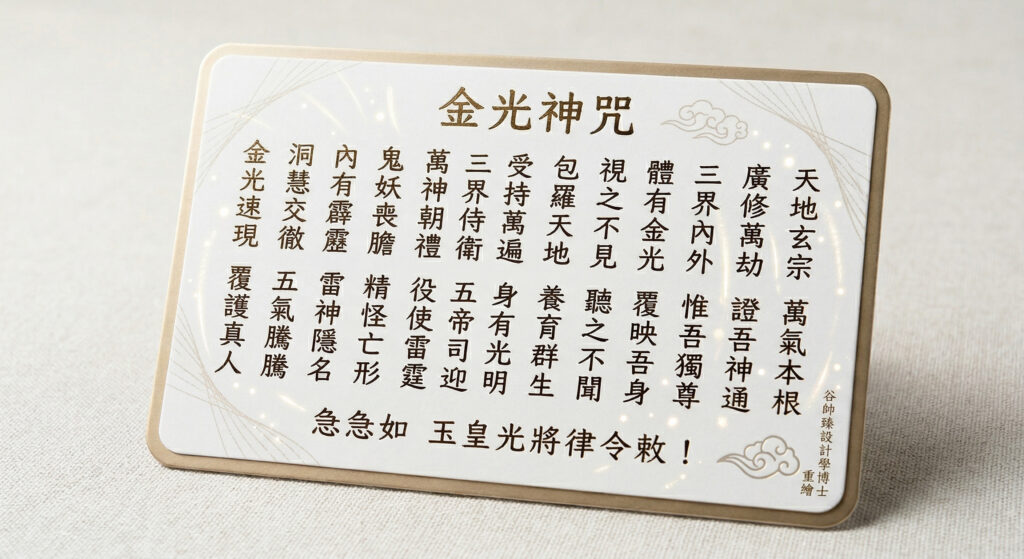 金光神咒
天地玄宗 萬氣本根
廣修萬劫 證吾神通
三界內外 惟吾獨尊
體有金光 覆映吾身
視之不見 聽之不聞
包羅天地 養育群生
受持萬遍 身有光明
三界侍衛 五帝司迎
萬神朝禮 役使雷霆
鬼妖喪膽 精怪亡形
內有霹靂 雷神隱名
洞慧交徹 五氣騰騰
金光速現 覆護真人
急急如 玉皇光將律令敕！
谷帥臻設計學博士
重繪